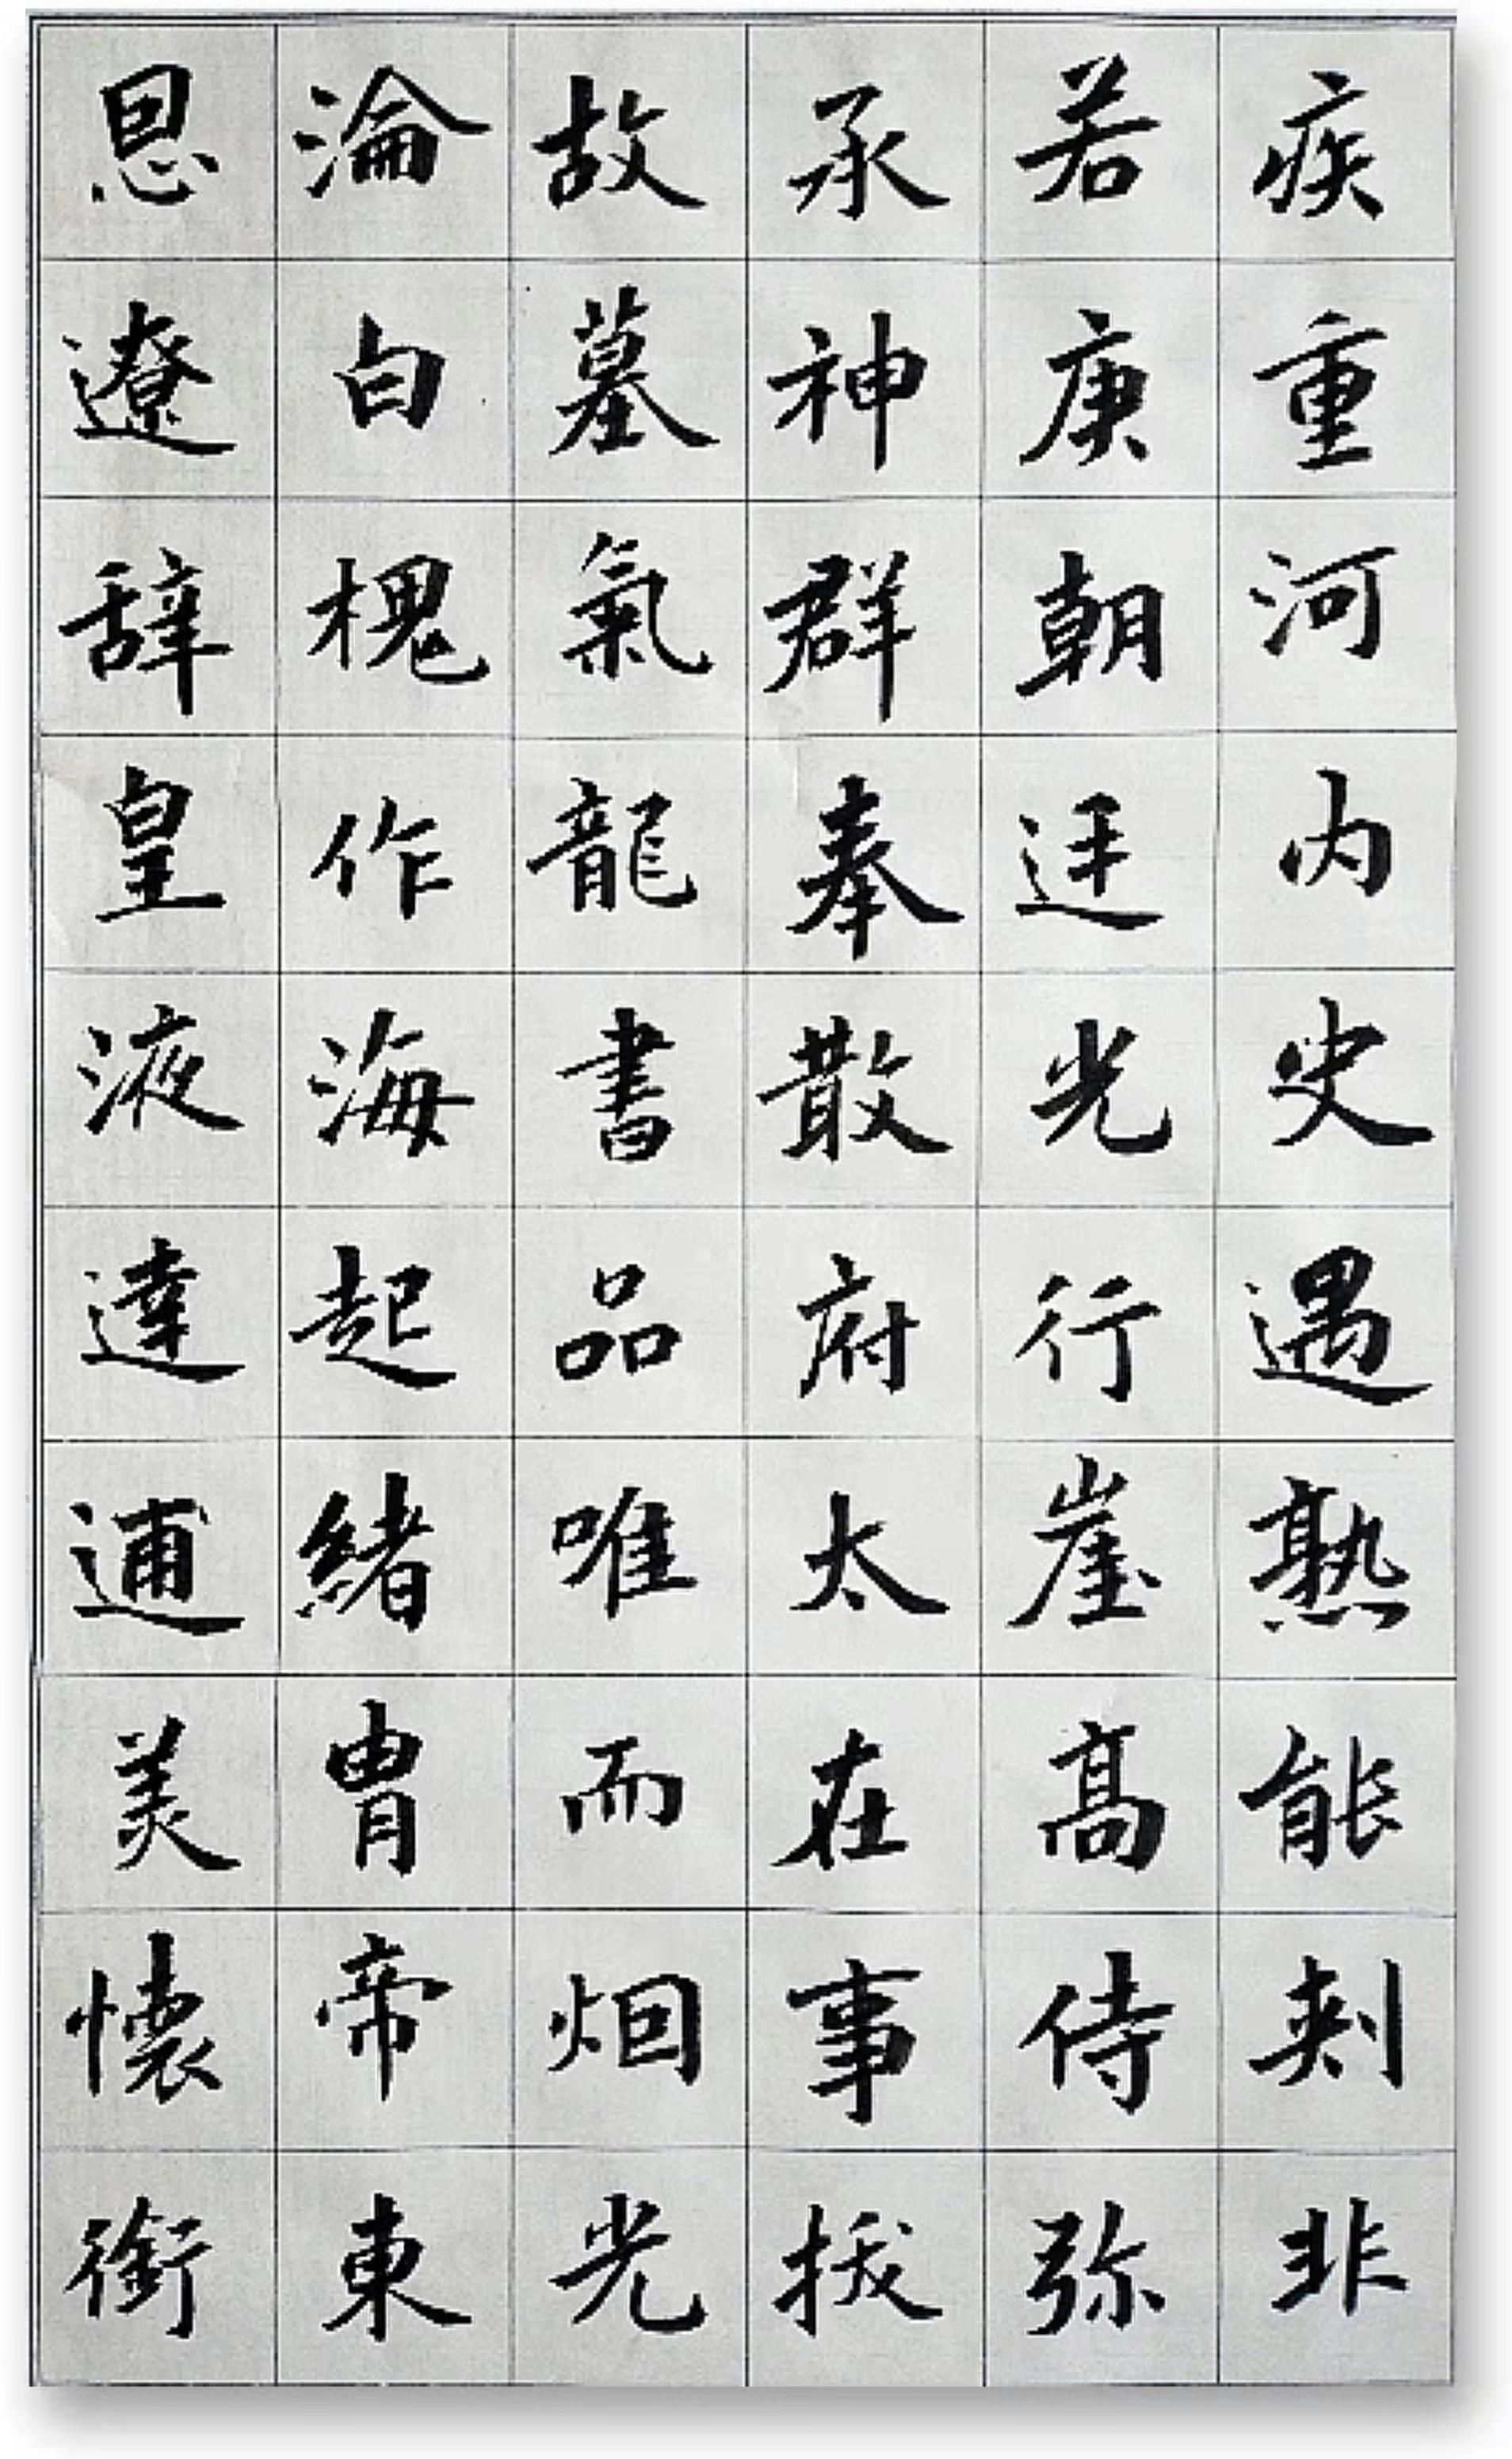 疾重河内史遇熟能刺非
若庚朝廷光行崖高侍弥
承神群奉散府太在事拔
故墓氣龍書品唯而烟光
淪白槐作海起緒胄帝東
恩遼辞皇液達逋美懷銜